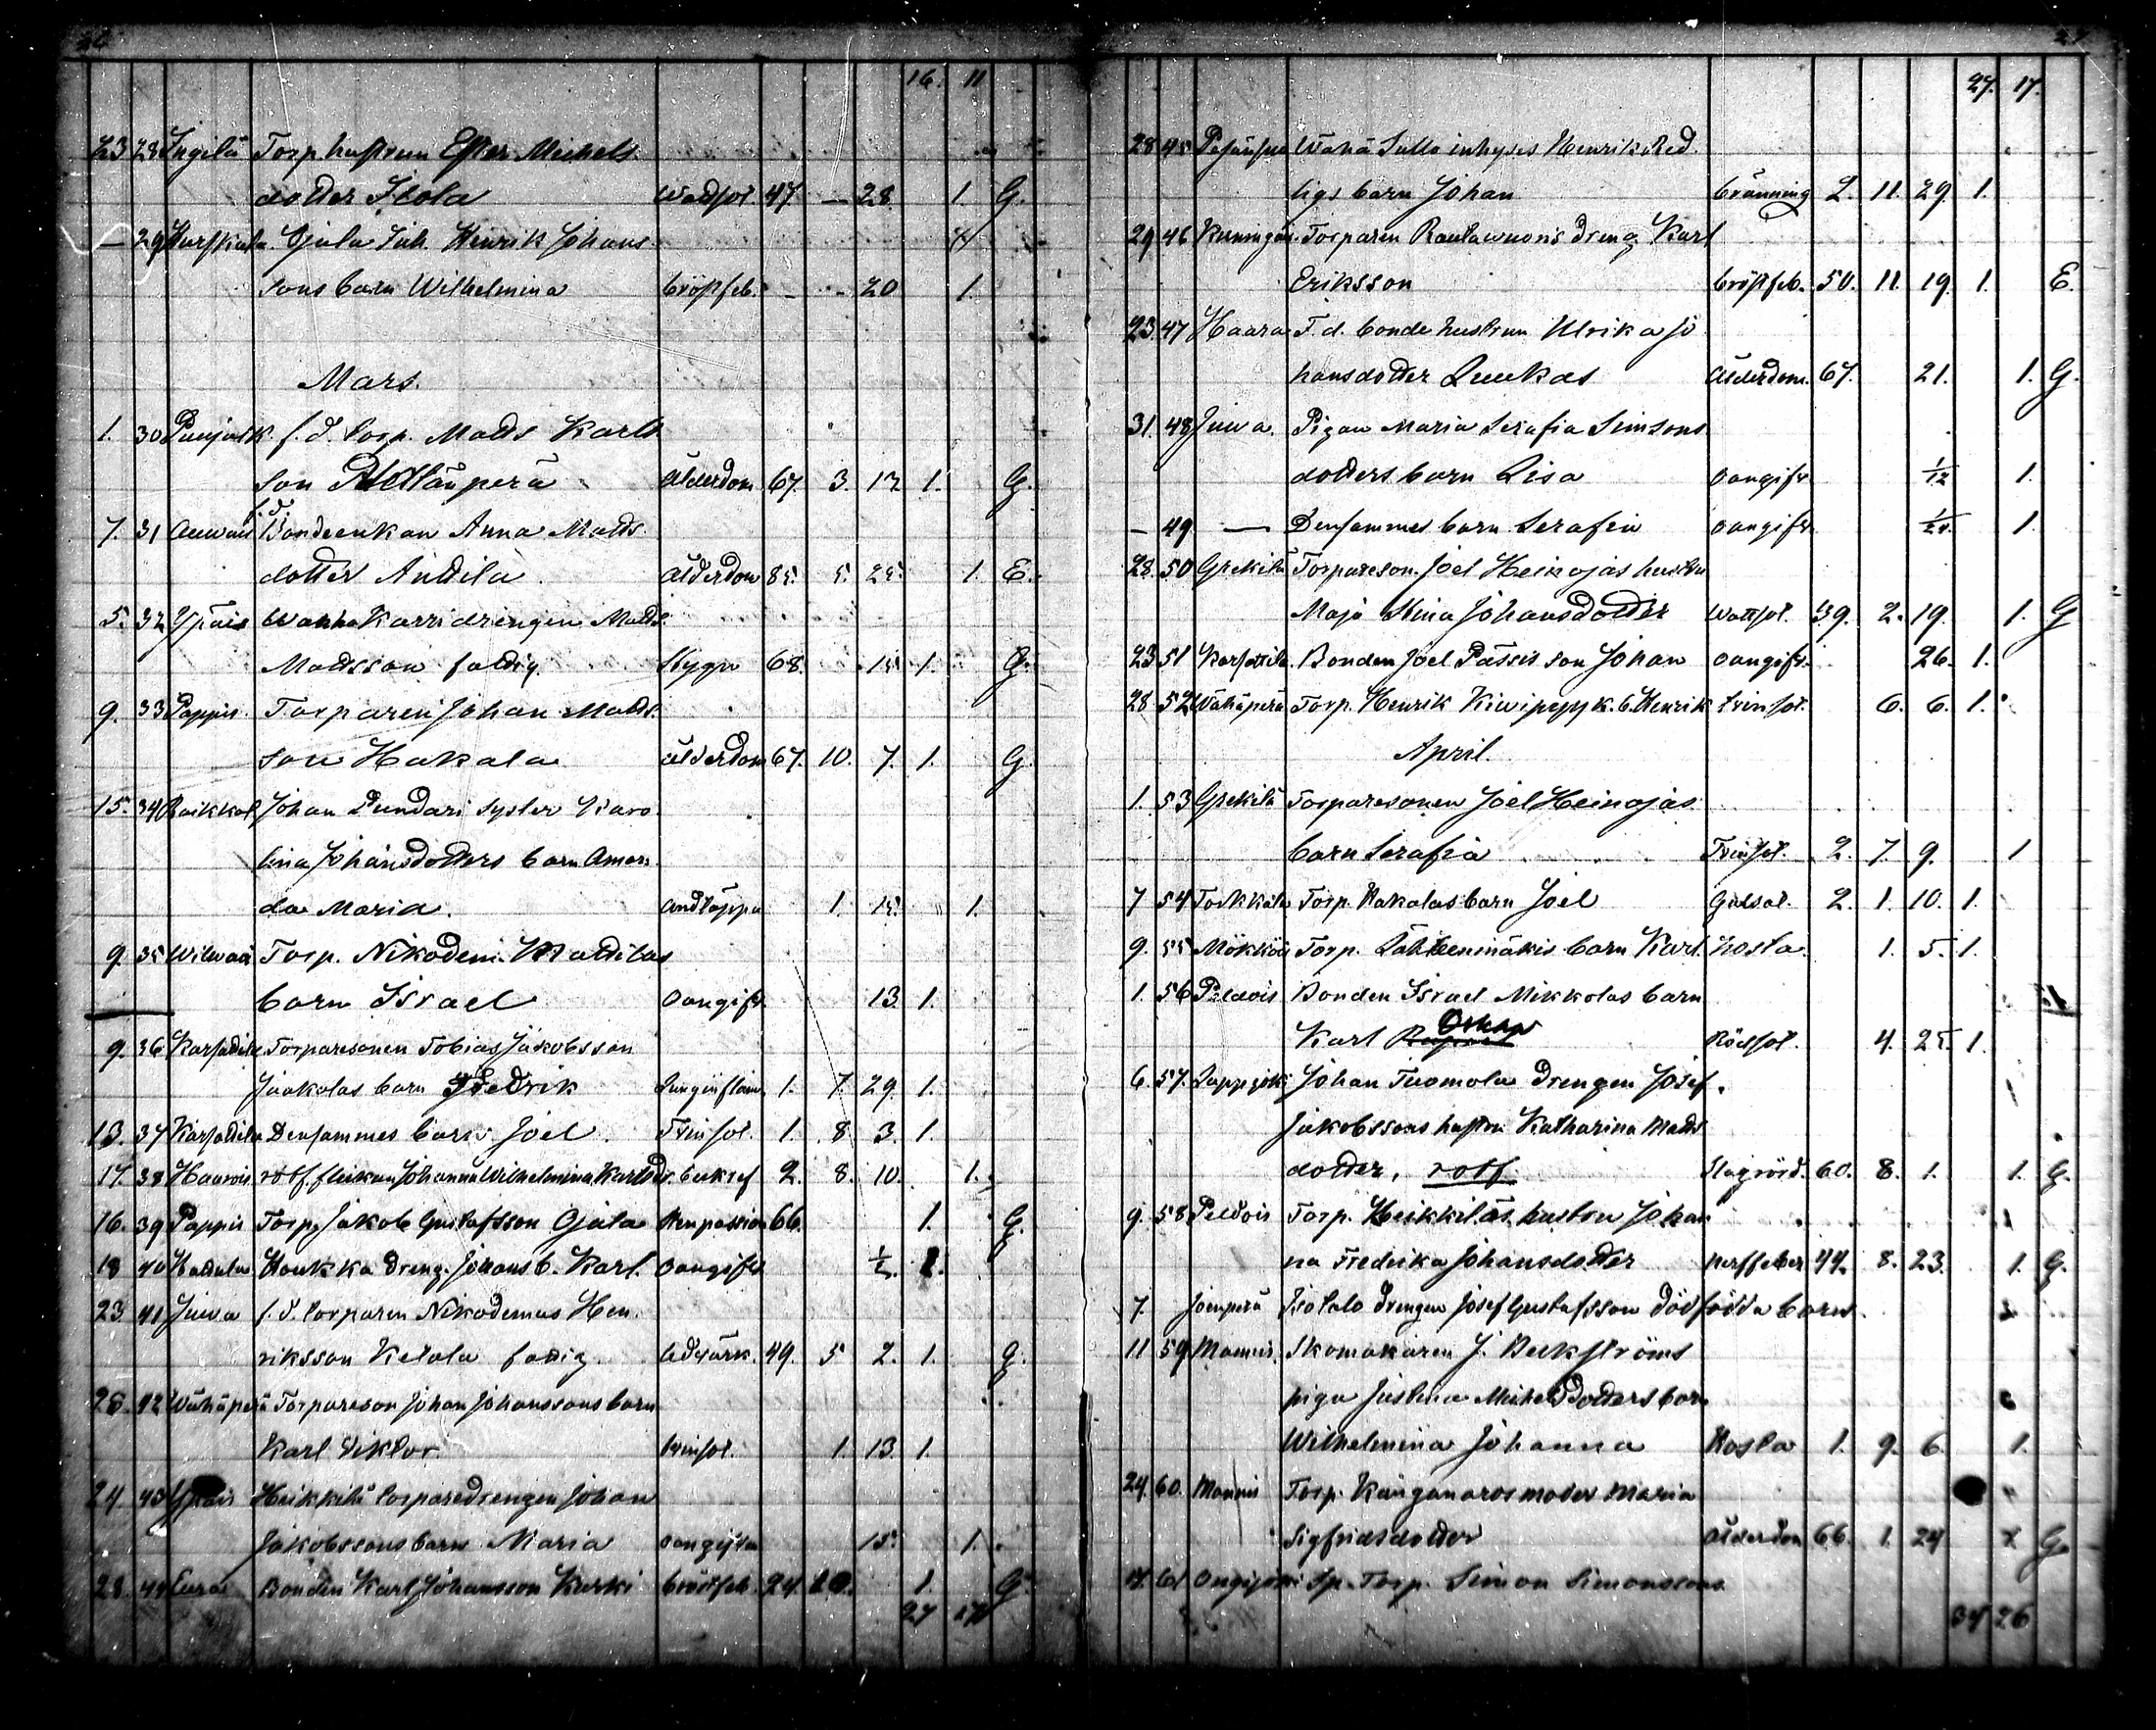 16. 11
23 28 Ingilä Torp. hustrun Ester Michels
dotter Isola Wattsot 47. — 28. 1. G.
— 29 Ojala Inh. Henrik Johans
sons barn Wilhelmina bröstfeb. - - 20 1.
Mars.
1. 30 f. d. torp. Matts Karls
son ålderdom 67. 3. 12 1. G.
f.d.
7. 31 Bondeenkan Anna Matts
dotter Anttila ålderdom 85. 5. 25. 1. E.
5. 32 Ypäis drengen Matts
Mattsson fattig. Stygn 68. 15. 1. G.
9. 33 Pappis. Torparen Johan Matts
son Hakala ålderdom 67. 10. 7. 1. G.
15. 34 Johan Pundari syster Karo
lina Johansdotters barn Aman
da Maria. andtäppa 1. 15. 1.
9. 35 Torp. Nikodem. Mattilas
barn Israel oangifv. 13 1.
9. 36 Karsattila Torparesonen Tobias Jakobsson
Jaakolas barn Fredrik Lunginflam. 1. 7. 29. 1.
13. 37 Karsattila Densammes barn Joel. Trinsot. 1. 8 3. 1.
17. 38 rotf. flickan Johanna Wilhelmina Karlsdr. 2. 8. 10. 1.
16. 39 Pappis Torp. Jakob Gustafsson Ojala 66. 1. G.
18 40 Houkka dreng. Johans b. Karl. oangifv. ½. 1.
23. 41 Juva f. d. torparen Nikodemus Hen
riksson Ketola fattig. 49. 5 2. 1. G.
25. 42 Wähäperä Torpareson Johan Johanssons barn
Karl Viktor. trinsot. 1. 13. 1.
24. 43 Ypäis Heikkilä torparedrengen Johan
Jakobssons barn Maria oangifven 15. 1.
28. 44 Eura Bonden Karl Johansson Kurki bröstfeb. 24. 10. 1. G.
27 17
27. 17.
28 45 Wähä Sallo inhyses Henrik Red
ligs barn Johan bränning 2. 11. 29. 1.
29 46 Torparen Rautawuoris dreng Karl
Eriksson bröstfeb. 50. 11. 19. 1. E.
23. 47 Haara F. d. bonde hustrun Ulrika Jo
hansdotter Luukas ålderdom. 67. 21. 1. G.
31. 48 Juva. Pigan Maria Serafia Simsons
dotters barn Lisa oangifv 1/12 1.
— 49. — Densammes barn Serafia oangifv 1.
28. 50 Torpareson. Joel Heinojas hustru
Maja Stina Johansdotter Wattsot. 39. 2. 19. 1. G
23 51 Karsattila. Bonden Joel Pässis son Johan oangifv. 26. 1.
28. 52 Wähäperä Torp. Henrik Kiwipyyk. b. Henrik trinsot. 6. 6. 1.
April.
1. 53 Torparesonen Joel Heinojas
barn Serafia Trinsot. 2. 7. 9. 1
7 54 Torp. Hakalas barn Joel Gulsot. 2. 1. 10. 1.
9. 55 Torp. Lähteenmäkis barn Karl. hosta. 1. 5. 1.
1. 56 Peldois Bonden Israel Mikkolas barn
Karl Oskar Rödsot. 4. 25. 1.
6. 57. Johan Tuomola drengen Josef
Jakobssons hustru Katharina Matts
dotter, rotf. 60. 8. 1. 1. G.
9. 58 Peldois Torp. Heikkiläs hustru Johan
na Fredrika Johansdotter 44. 8. 23. 1. G.
7. drengen Josef Gustafsson dödfödda barn.
11 59 Mannis. Skomakaren J. Beckströms
piga Justina Mickelsdotters barn
Wilhelmina Johanna Hosta 1. 9. 6. 1.
24. 60. Mannis Torp. moder Maria
Sigfridsdotter ålderdom 66. 1. 24 G.
61 Sp. Torp. Simon Simonssons
34 26